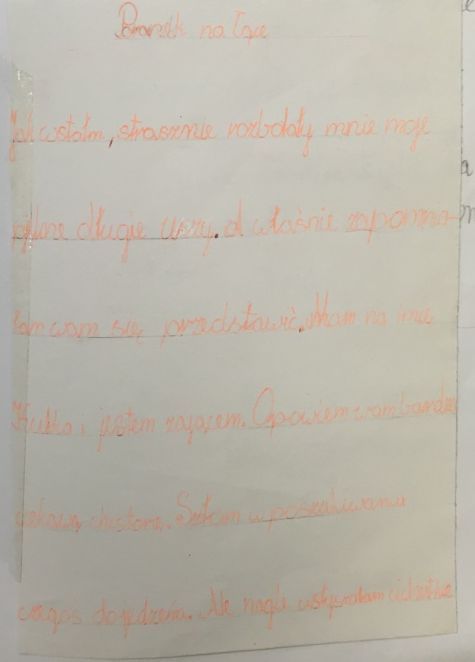 Poranek na łące
Jak wstałm, strasznie rozbolały mnie moje
długie uszy. A właśnie zapomnia-
łam wam się przedstawić. Mam na imię
i jestem zającem. Opowiem wam bardzo
ciekawą chistorę. Szłam w poszukiwaniu
czegoś do jedzenia. Ale nagle usłyszałam cichutkie